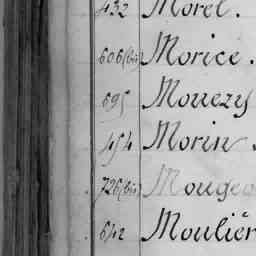 432 Morel.
606 (bis) Morice.
695 Mouezy
454 Morin.
726 (bis) Mouge
642 Moulièr